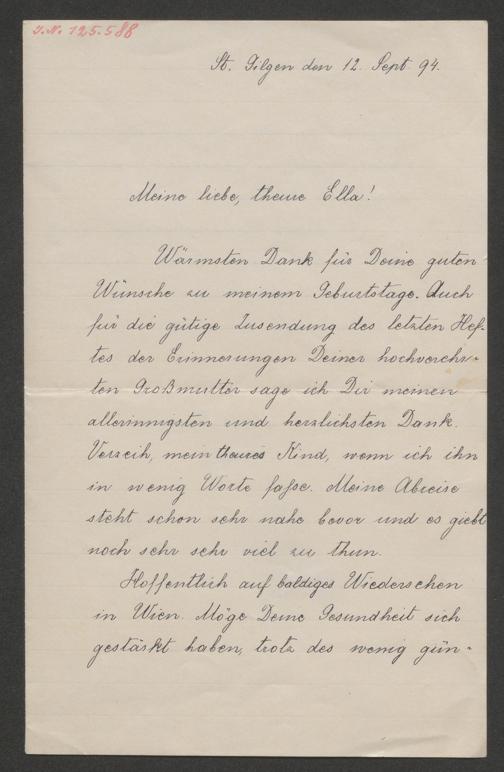 J.N. 125.588
St. Gilgen den 12. Sept. 94.
Meine liebe, theure Ella!
Wärmsten Dank für Deine guten
Wünsche zu meinem Geburtstage. Auch
für die gütige Zusendung des letzten Hef-
tes der Erinnerungen Deiner hochverehr-
ten Großmutter sage ich Dir meinen
allerinnigsten und herzlichsten Dank.
Verzeih, mein theures Kind, wenn ich ihn
in wenig Worte faße. Meine Abreise
steht schon sehr nahe bevor und es giebt
noch sehr sehr viel zu thun.
Hoffentlich auf baldiges Wiedersehen
in Wien. Möge Deine Gesundheit sich
gestärkt haben, trotz des wenig gün-